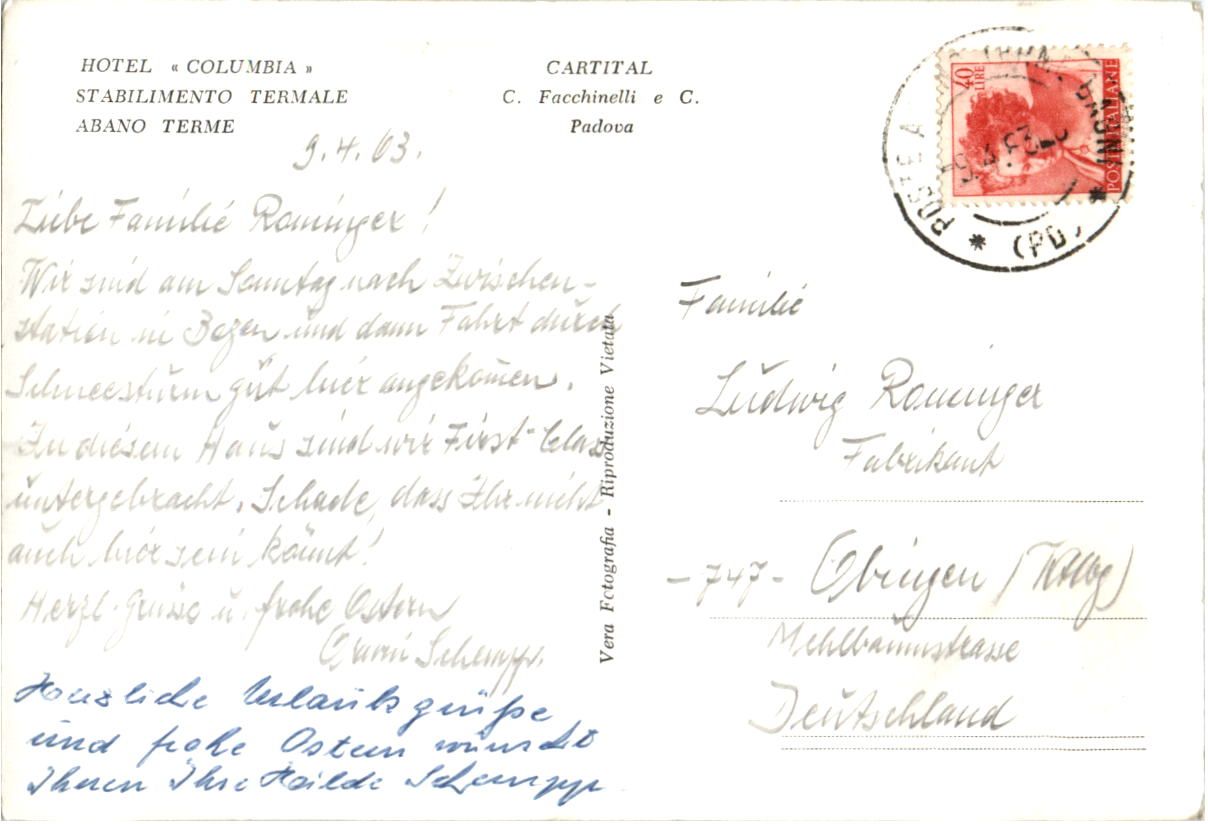 HOTEL « COLUMBIA »
STABILIMENTO TERMALE
ABANO TERME
CARTITAL
C. Facchinelli e C.
Padova
40 LIRE
POSTE ITALIANE
POSTE A
(PD)
9.4.63.
Liebe Familie Rominger!
Wir sind am Sonntag nach Zwischen-
station in Bozen und dann Fahrt durch
Schneesturm gut hier angekommen.
In diesem Haus sind wir First-Class
untergebracht. Schade, dass Ihr nicht
auch hier sein könnt!
Herzl. Grüsse u. frohe Ostern
Schempp.
Herzliche Urlaubsgrüße
und frohe Ostern wünscht
Ihnen Ihre Hailde Schempp
Vera Fotografia - Riproduzione Vietata
Familie
Ludwig Rominger
Fabrikant
-747- Ebingen (Wttbg)
Mehlbaumstrasse
Deutschland